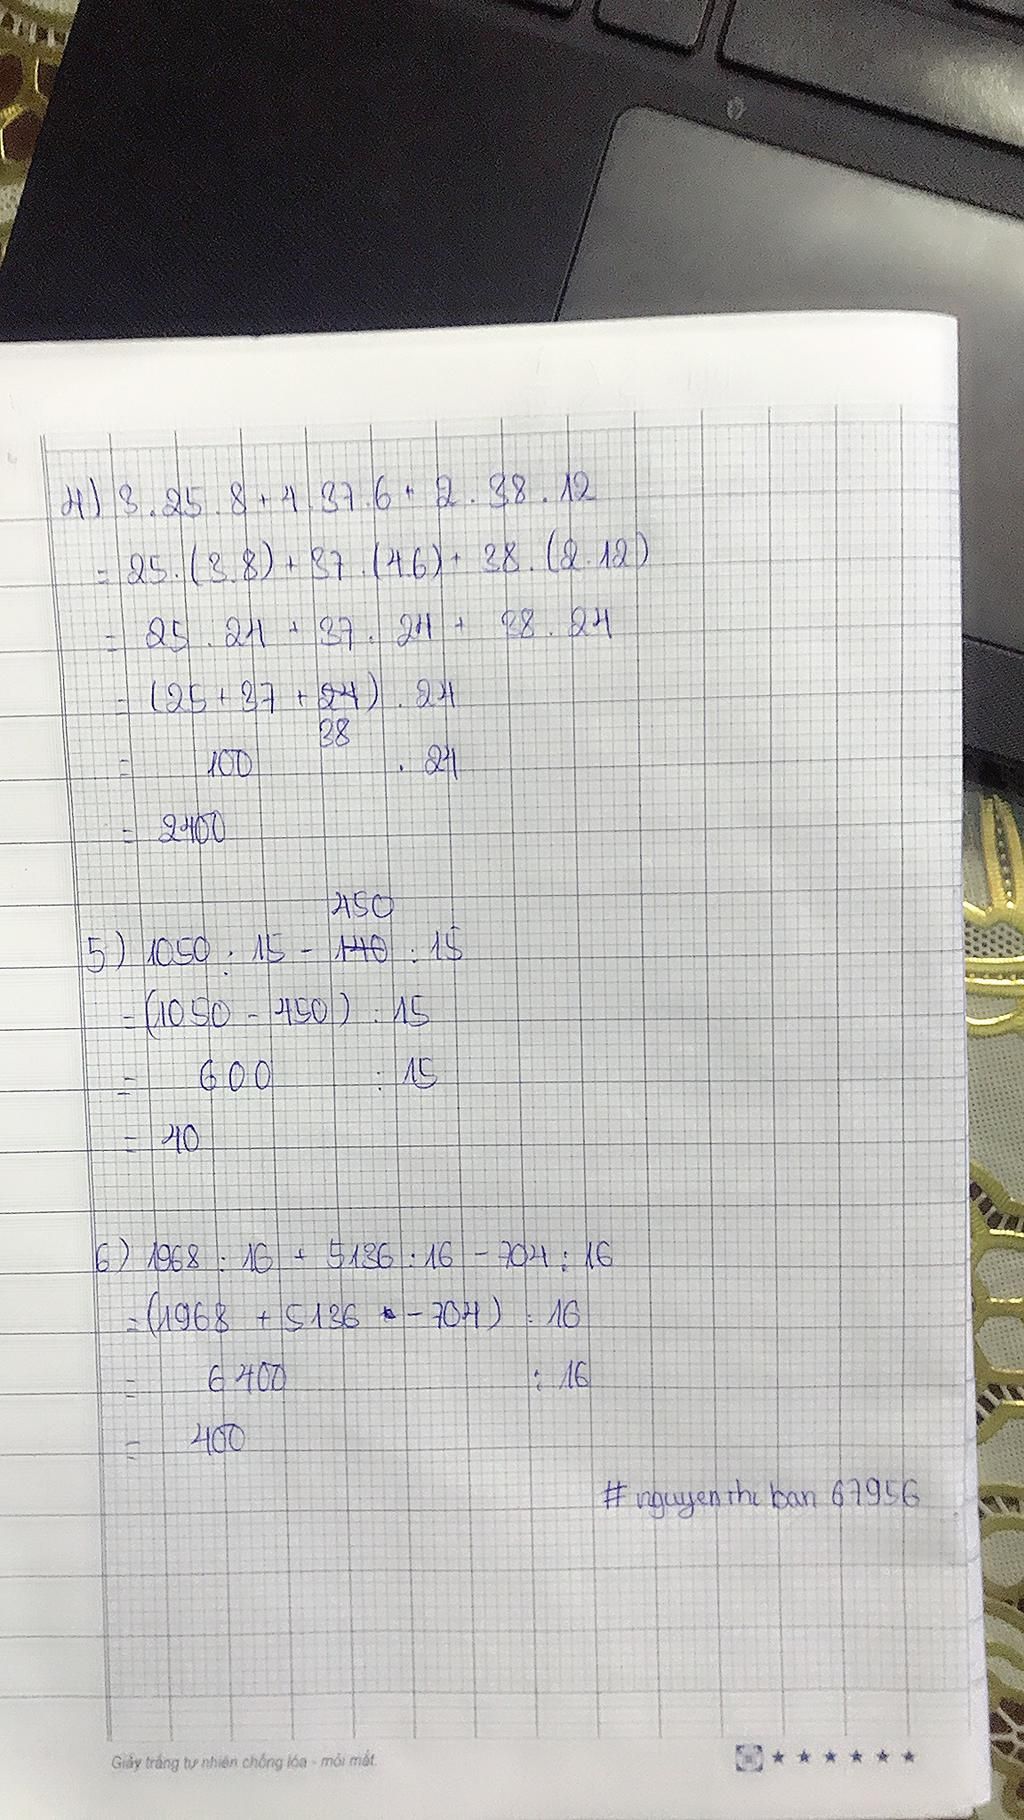 4) 3.25.8 + 4.37.6 + 2.38.12
= 25.(3.8) + 37.(4.6) + 38.(2.12)
= 25.24 + 37.24 + 38.24
= (25 + 37 + 24).24
38
= 100 . 24
= 2400
450
5) 1050 : 15 - 140 : 15
= (1050 - 450) : 15
= 600 : 15
= 40
6) 1968 : 16 + 5136 : 16 - 704 : 16
= (1968 + 5136 - 704) : 16
= 6400 : 16
= 400
# nguyen thi ban 67956
Giấy trắng tự nhiên chống lóa - mỏi mắt.